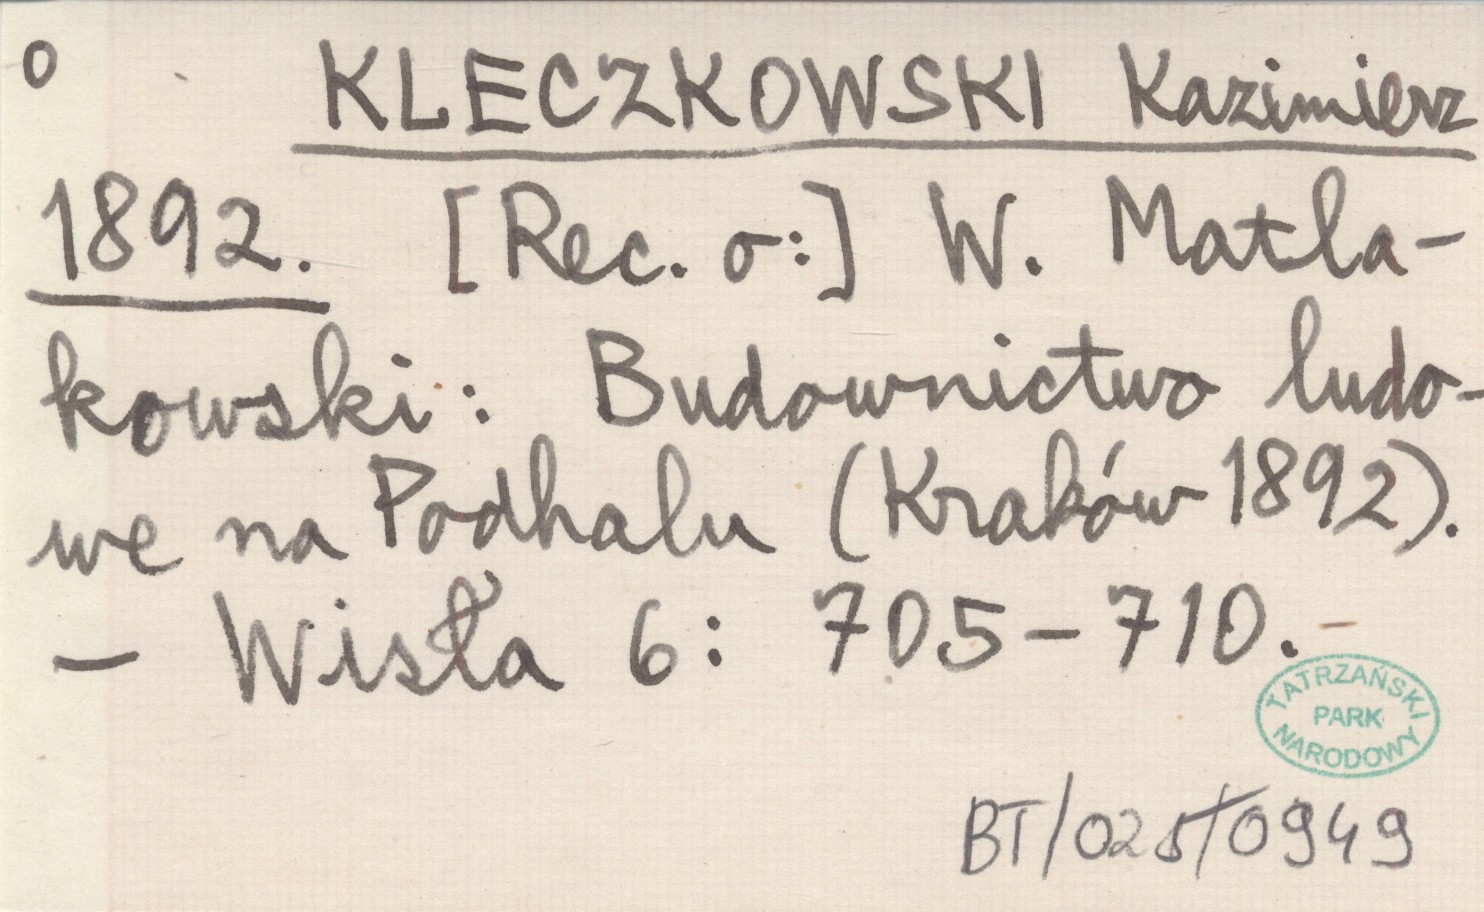 O KLECZKOWSKI Kazimierz
1892. [Rec. o:] W. Matla-
kowski: Budownictwo ludo-
we na Podhalu (Kraków 1892).
— Wisła 6: 705–710.–
TATRZAŃSKI
PARK
NARODOWY
BT/025/0949